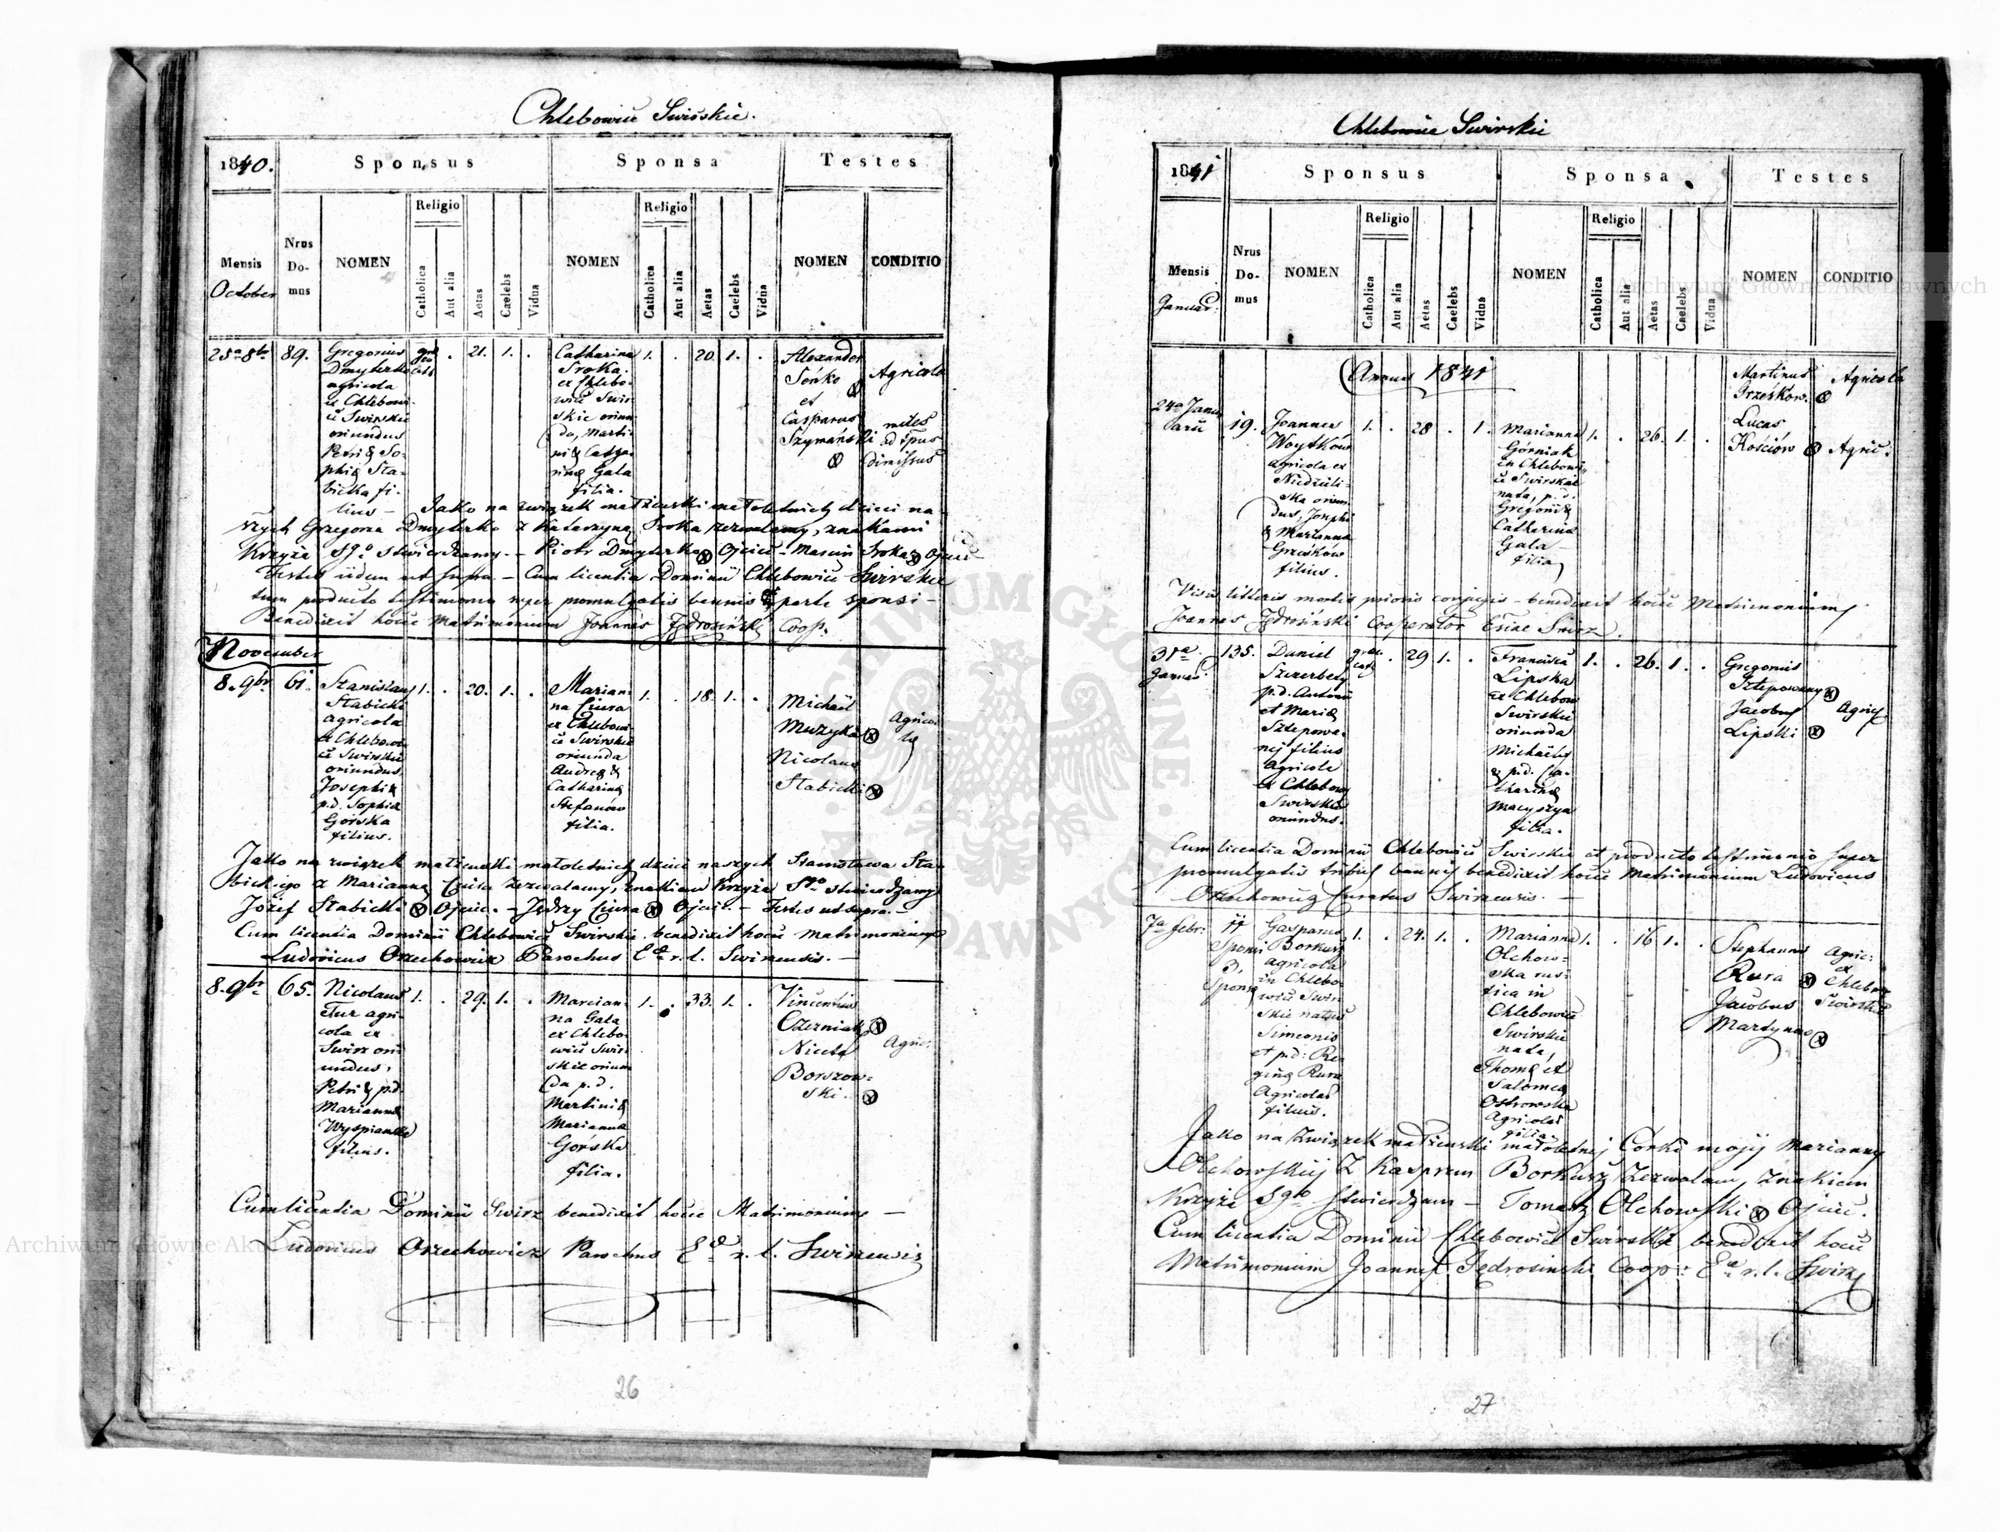 Chlebowice Swirskie.
1840.
Sponsus
Sponsa
Testes
Mensis
October
Nrus Do- mus
NOMEN
Religio
Catholica
Aut alia
Aetas
Caelebs
Vidua
NOMEN
Religio
Catholica
Aut alia
Aetas
Caelebs
Vidua
NOMEN
CONDITIO
25a 8br
89.
Gregorius
Dmyterko
agricola
ex Chlebowi-
cii Swirskie
oriundus
Petri & So-
phiæ Sta-
bicka fi-
lius -
21. 1.
Catharina
Sroka
ex Chlebo-
wice Swir-
skie oriun-
da, Marti-
ni & Catha-
rinæ Gala
filia.
1. . 20. 1. .
Alexander
Sońko
et
Casparus
Szymański
Agricola
miles
dimissus
Jako na związek małżeński małoletnich dzieci na-
szych Grzegorza Dmyterko z Katarzyną Sroka zezwalamy, znakami
Krzyża Sgo stwierdzamy. - Piotr Dmyterko Ojciec - Marcin Sroka Ojciec
Testes iidem ut supra. - Cum licentia Dominii Chlebowice Swirskie
tum producto testimonio super promulgatis bannis parte sponsi -
Benedixit hocce Matrimonium Joannes Jędrosiński Coop.
November
8. 9br
61.
Stanislaus
Stabicki
agricola
ex Chlebowi-
cii Swirskie
oriundus
Josephi &
p.d. Sophiæ
Gorska
filius.
1. . 20. 1. .
Marian-
na Ciura
ex Chlebowi-
cii Swirskie
oriunda
Andreæ &
Catharinæ
Stefanów
filia.
1. . 18. 1. .
Michael
Muzyka
Nicolaus
Stabicki
Agricolæ
Jako na związek małżeński małoletnich dzieci naszych Stanisława Sta-
bickiego z Marianną Ciura zezwalamy, znakiem Krzyża Sgo stwierdzamy
Józef Stabicki Ojciec. - Jędrzy Ciura Ojciec. - Testes ut supra. -
Cum licentia Dominii Chlebowice Swirskie benedixit hocce Matrimonium
Ludovicus Orzechowicz Parochus Eæ r. l. Swirzensis. -
8. 9br
65.
Nicolaus
Tur agri-
cola ex
Swirz ori-
undus,
Petri & p.d.
Mariannæ
Wyspianska
filius.
1. . 29. 1. .
Marian-
na Gala
ex Chlebo-
wice Swir-
skie oriun-
da p. d.
Martini &
Marianna
Gorska
filia.
1. . 33. 1. .
Vincentius
Czerniak
Niceta
Borszow-
ski.
Agric:
Cum licentia Dominii Swirz benedixit hocce Matrimonium -
Ludovicus Orzechowicz Parochus Eæ r. l. Swirzensis
26
Chlebowice Swirskie
1841
Sponsus
Sponsa
Testes
Mensis
Januar:
Nrus Do- mus
NOMEN
Religio
Catholica
Aut alia
Aetas
Caelebs
Vidua
NOMEN
Religio
Catholica
Aut alia
Aetas
Caelebs
Vidua
NOMEN
CONDITIO
Annus 1841
24a Janu-
arii
19.
Joannes
Woytków
agricola ex
Niedzieli-
ska oriun-
dus, Josephi
& Marianna
Grześków
filius.
1. . 28 . 1.
Marianna
Górniak
ex Chlebowi-
cii Swirskie
nata, p. d.
Gregorii &
Catharina
Gala
filia
1. . 26. 1. .
Martinus
Grześków.
Lucas
Kościów
Agricola
Agric:
Visis litteris mortis prioris conjugis - benedixit hocce Matrimonium
Joannes Jędrosiński Cooperator Eccliæ Swirz.
31a
Januar:
135.
Daniel
Szczerbaty
p. d. Antonii
et Mariæ
Sztepowa-
nej filius
agricola
ex Chlebow
Swirskie
oriundus.
29 1. .
Francisca
Lipska
ex Chlebow
Swirskie
oriunda
Michaelis
& p.d. Ca-
tharinæ
Macyszyn
filia.
1. . 26. 1. .
Gregorius
Sztepowany
Jacobus
Lipski
Agric.
Cum licentia Dominii Chlebowice Swirskie et producto testimonio super
promulgatis tribus bannis benedixit hocce Matrimonium Ludovicus
Orzechowicz Curatus Swirzensis. -
7a Febr:
77
Sponsi
3.
Sponsæ
Gasparus
Borkusz
agricola
in Chlebo-
wice Swir-
skie natus
Simeonis
et p.d: Re-
ginæ Rura
Agricolas
filius.
1. . 24. 1. .
Marianna
Olchow-
ska rus-
tica in
Chlebowice
Swirskie
nata,
Thomæ et
Salomea
Ostrowska
Agricolas
filia
1. . 16 1. .
Stephanus
Rura
Jacobus
Martynus
Agric:
ex
Chlebow
Swirskie
Jako na związek małżeński małoletnej Córki mojej Marianny
Olchowskiej z Kasprem Borkusz zezwalam, znakiem
Krzyża Sgo stwierdzam - Tomasz Olchowski Ojciec.
Cum licentia Dominii Chlebowice Swirskie benedixit hocce
Matrimonium Joannes Jędrosinski Coop: Eæ r. l. Swirz
27
Archiwum Główne Akt Dawnych
Archiwum Główne Akt Dawnych
ARCHIWUM GŁÓWNE AKT DAWNYCH